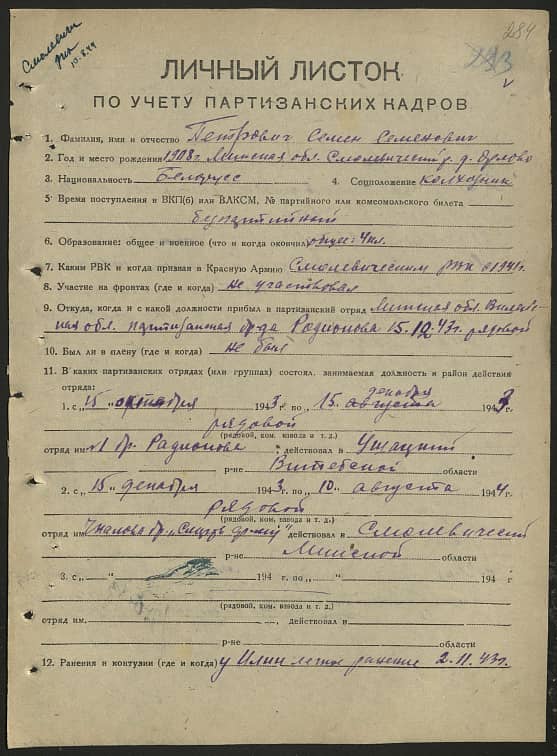 284
Смолевичи
рик
10.8.44
233
ЛИЧНЫЙ ЛИСТОК
ПО УЧЕТУ ПАРТИЗАНСКИХ КАДРОВ
1. Фамилия, имя и отчество Петрович Семен Семенович
2. Год и место рождения 1908г Минская обл. Смолевический р. д. Орлово
3. Национальность Белорусс 4. Соцположение колхозник
5. Время поступления в ВКП(б) или ВЛКСМ, № партийного или комсомольского билета
безпартийный
6. Образование: общее и военное (что и когда окончил) общее: 4кл.
7. Каким РВК и когда призван в Красную Армию Смолевическим рвк в 1941г.
8. Участие на фронтах (где и когда) не участвовал
9. Откуда, когда и с какой должности прибыл в партизанский отряд Минская обл. Вилей-
ская обл. партизанская бр-да Родионова 15.10.43г. рядовой
10. Был ли в плену (где и когда) не был
11. В каких партизанских отрядах (или группах) состоял, занимаемая должность и район действия
отряда:
декабря
1. с „15„ октября 1943 г. по „15„ августа 1943г.
рядовой
(рядовой, ком. взвода и т. д.)
отряд им. 1 бр. Радионова действовал в Ушацкий
р-не Витебской области
2. с „15„ декабря 1943 г. по „10„ августа 1944г.
рядовой
(рядовой, ком. взвода и т. д.)
отряд им. Чкалова бр. „Смерть фаш." действовал в Смолевический
р-не Минской области
3. с „ „ 194 г. по „ " 194 г.
(рядовой, ком. взвода и т. д.)
отряд им. , действовал в
р-не области
12. Ранения и контузии (где и когда) у Илии легкое ранение 2.11.43г.